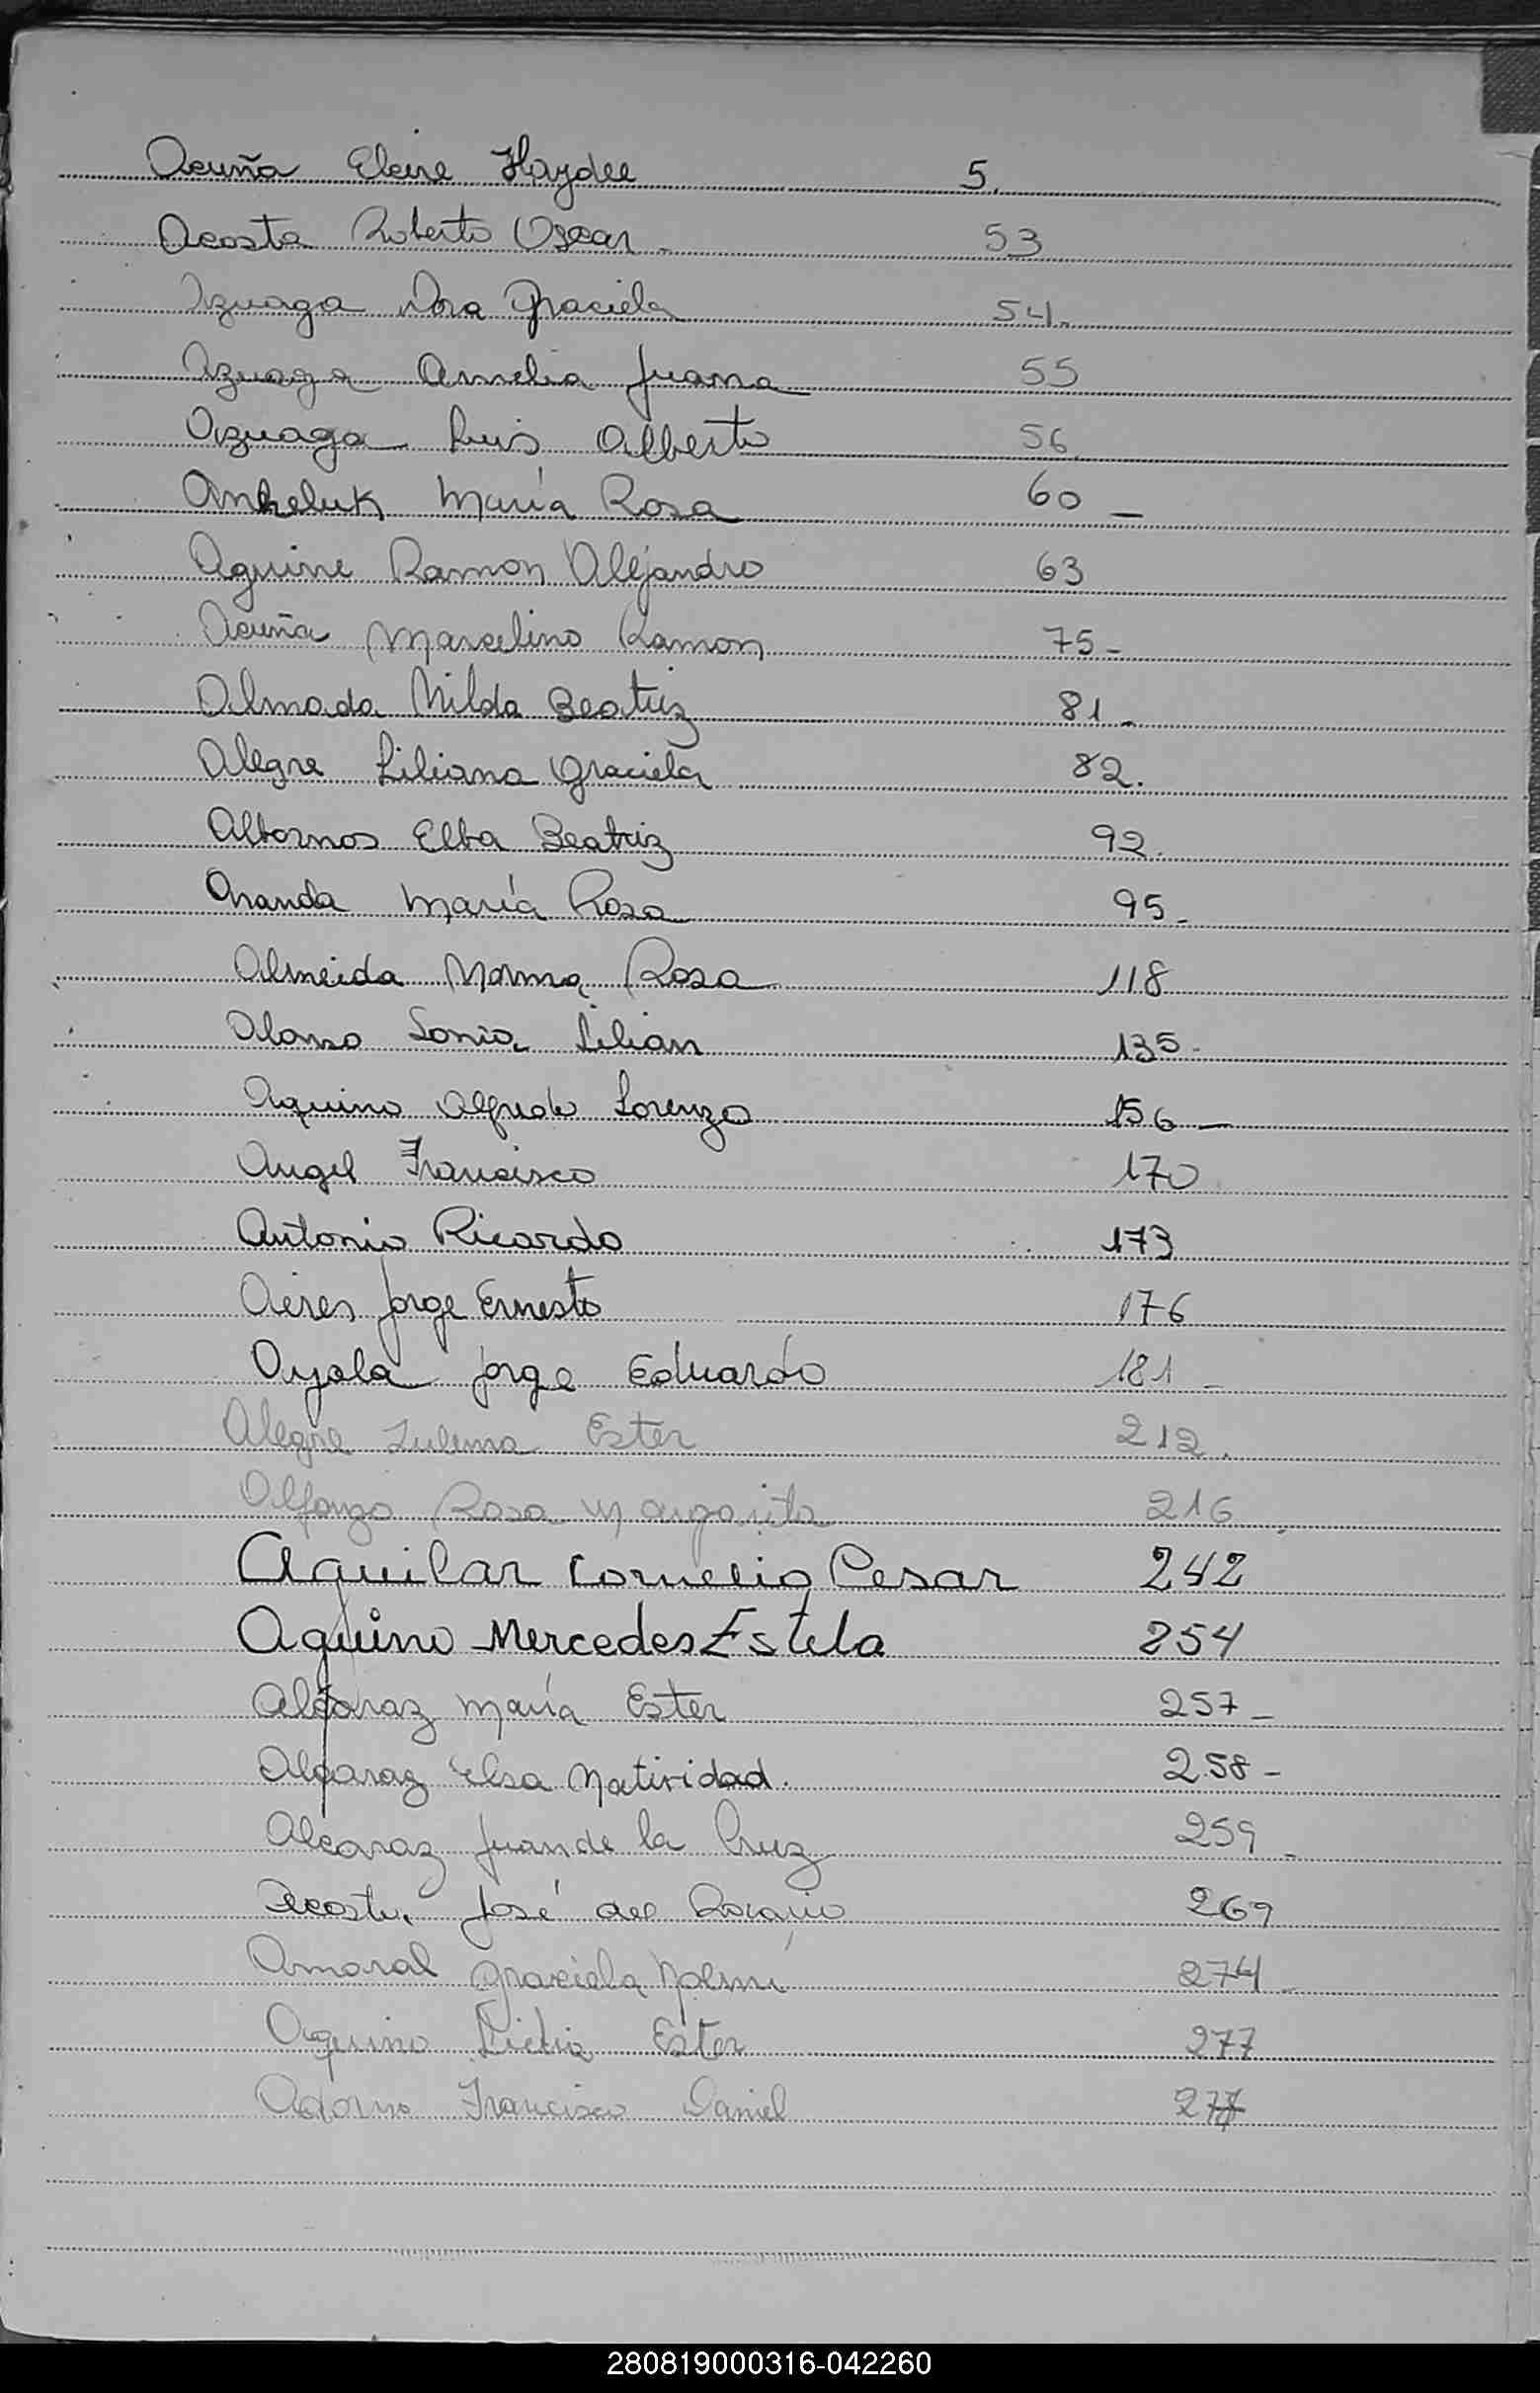 Acuña Elcire Haydee 5.
Acosta Roberto Oscar 53
Azuaga Nora Graciela 54.
Azuaga Amelia Juana 55
Azuaga Luis Alberto 56
Ankeluk María Rosa 60 _
Aguirre Ramon Alejandro 63
Acuña Marcelino Ramon 75 -
Almada Nilda Beatriz 81 -
Alegre Liliana Graciela 82.
Albornos Elba Beatriz 92.
Aranda María Rosa 95 -
Almeida Norma Rosa 118
Alonso Sonia Lilian 135 -
Aquino Alfredo Lorenzo 156 _
Angel Francisco 170
Antonio Ricardo 173
Aires Jorge Ernesto 176
Ayala Jorge Eduardo 181 _
Alegre Zulema Ester 212.
Alfonzo Rosa Margarita 216
Aguilar Cornelio Cesar 242
Aquino Mercedes Estela 254
Alcaraz María Ester 257 _
Alcaraz Elsa Natividad. 258 -
Alcaraz Juan de la Cruz 259 _
Acosta José del Rosario 269
Amaral Graciela Noemí 274 _
Aquino Lidia Ester 277
Adorno Francisco Daniel
280819000316-042260